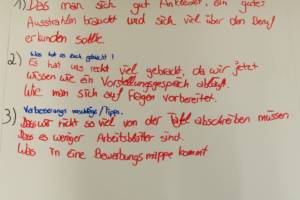 1) Das man sich gut Ankleidet, ein gutes
Ausstrahlen braucht und sich viel über den Beruf
erkunden sollte.
2) Was hat es euch gebracht?
Es hat uns recht viel gebracht, da wir jetzt
wissen wie ein Vorstellungsgespräch abläuft.
Wie man sich auf Fragen vorbereitet.
3) Verbesserungs vorschläge/Tipps.
Dass wir nicht so viel von der Tafel abschreiben müssen
Dass es weniger Arbeitsblätter sind.
Was in eine Bewerbungsmappe kommt